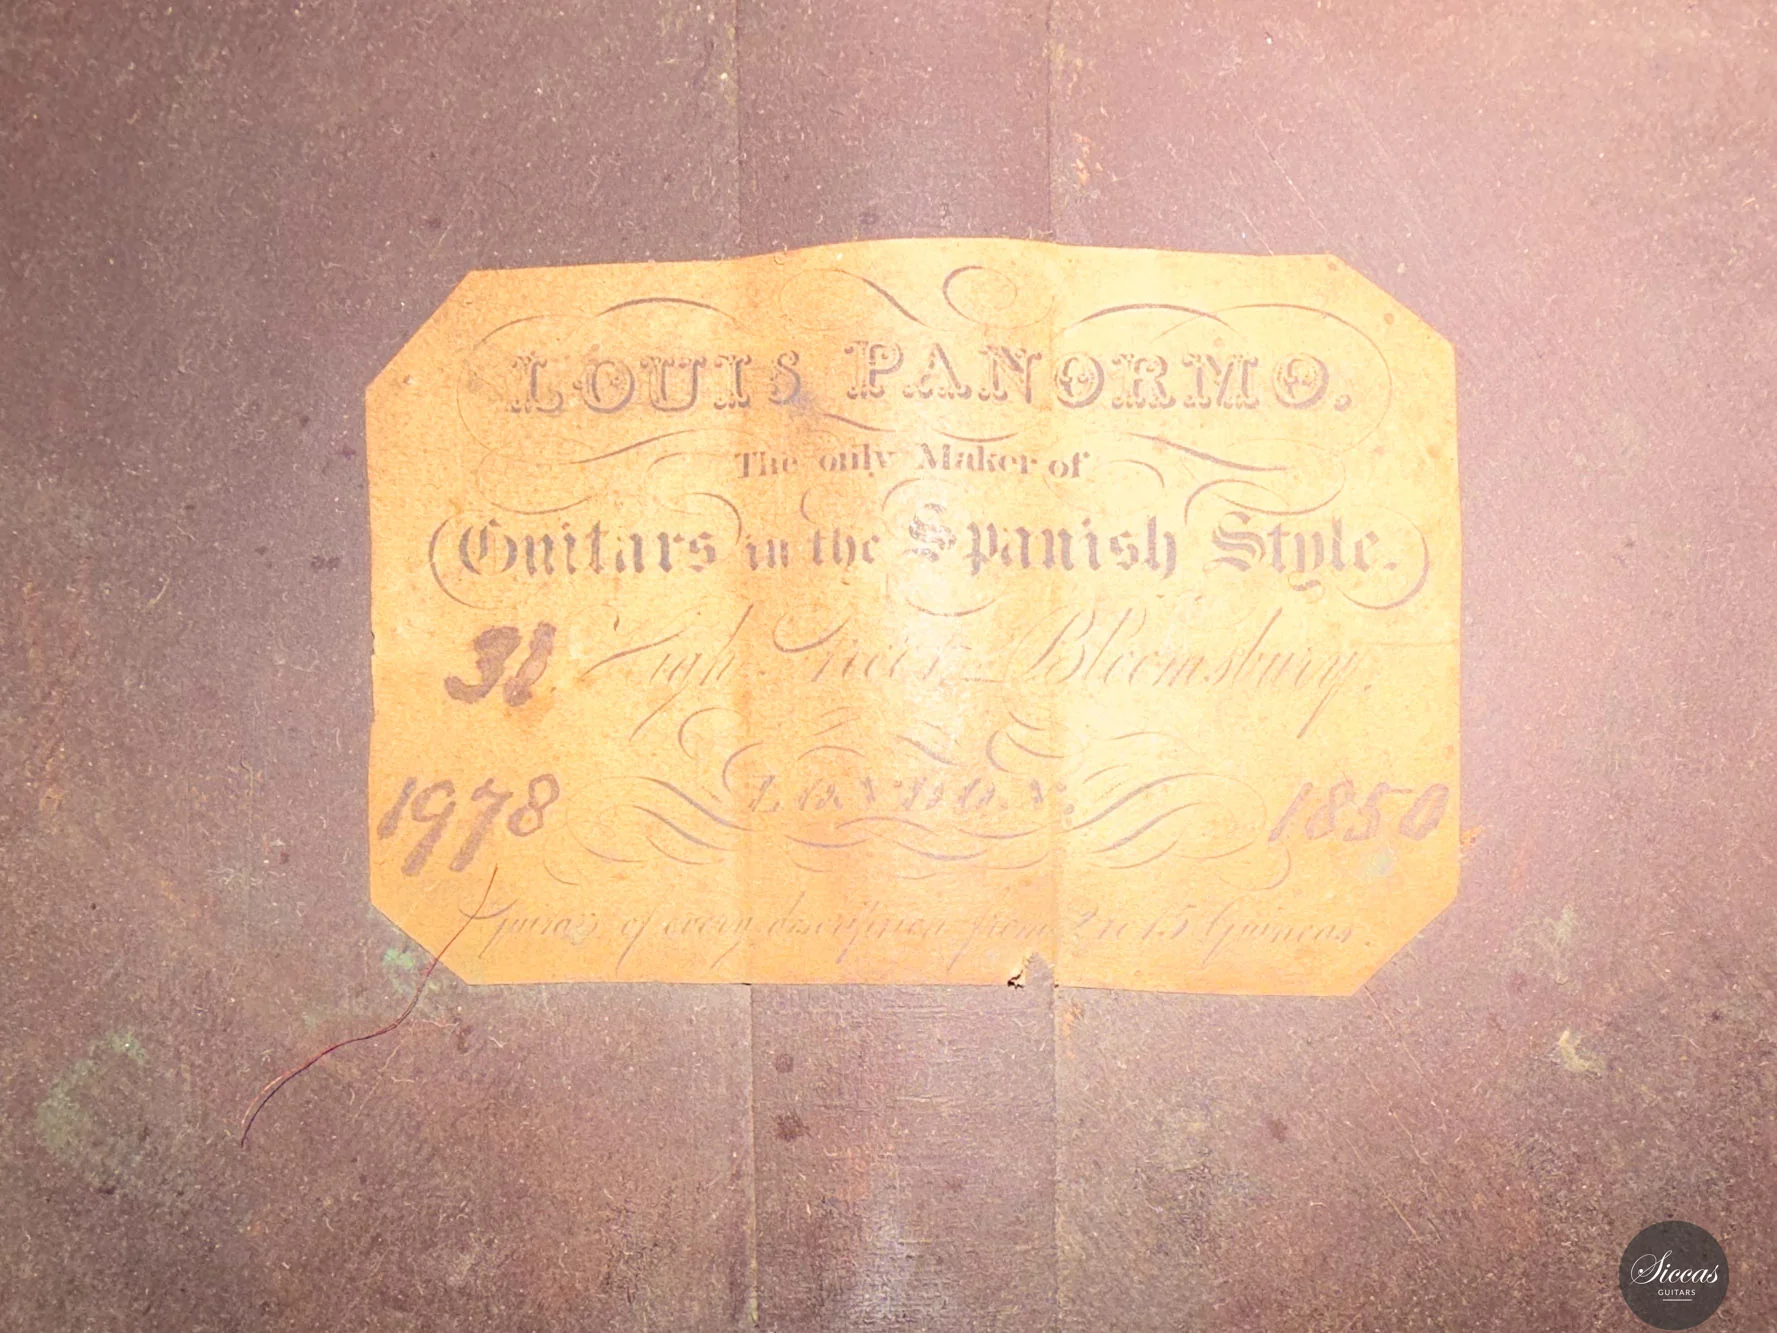 LOUIS PANORMO.
The only Maker of
Guitars in the Spanish Style.
High Street Bloomsbury.
LONDON.
1978 1850
Guitars of every description from 2 to 15 Guineas.
Siccas
GUITARS